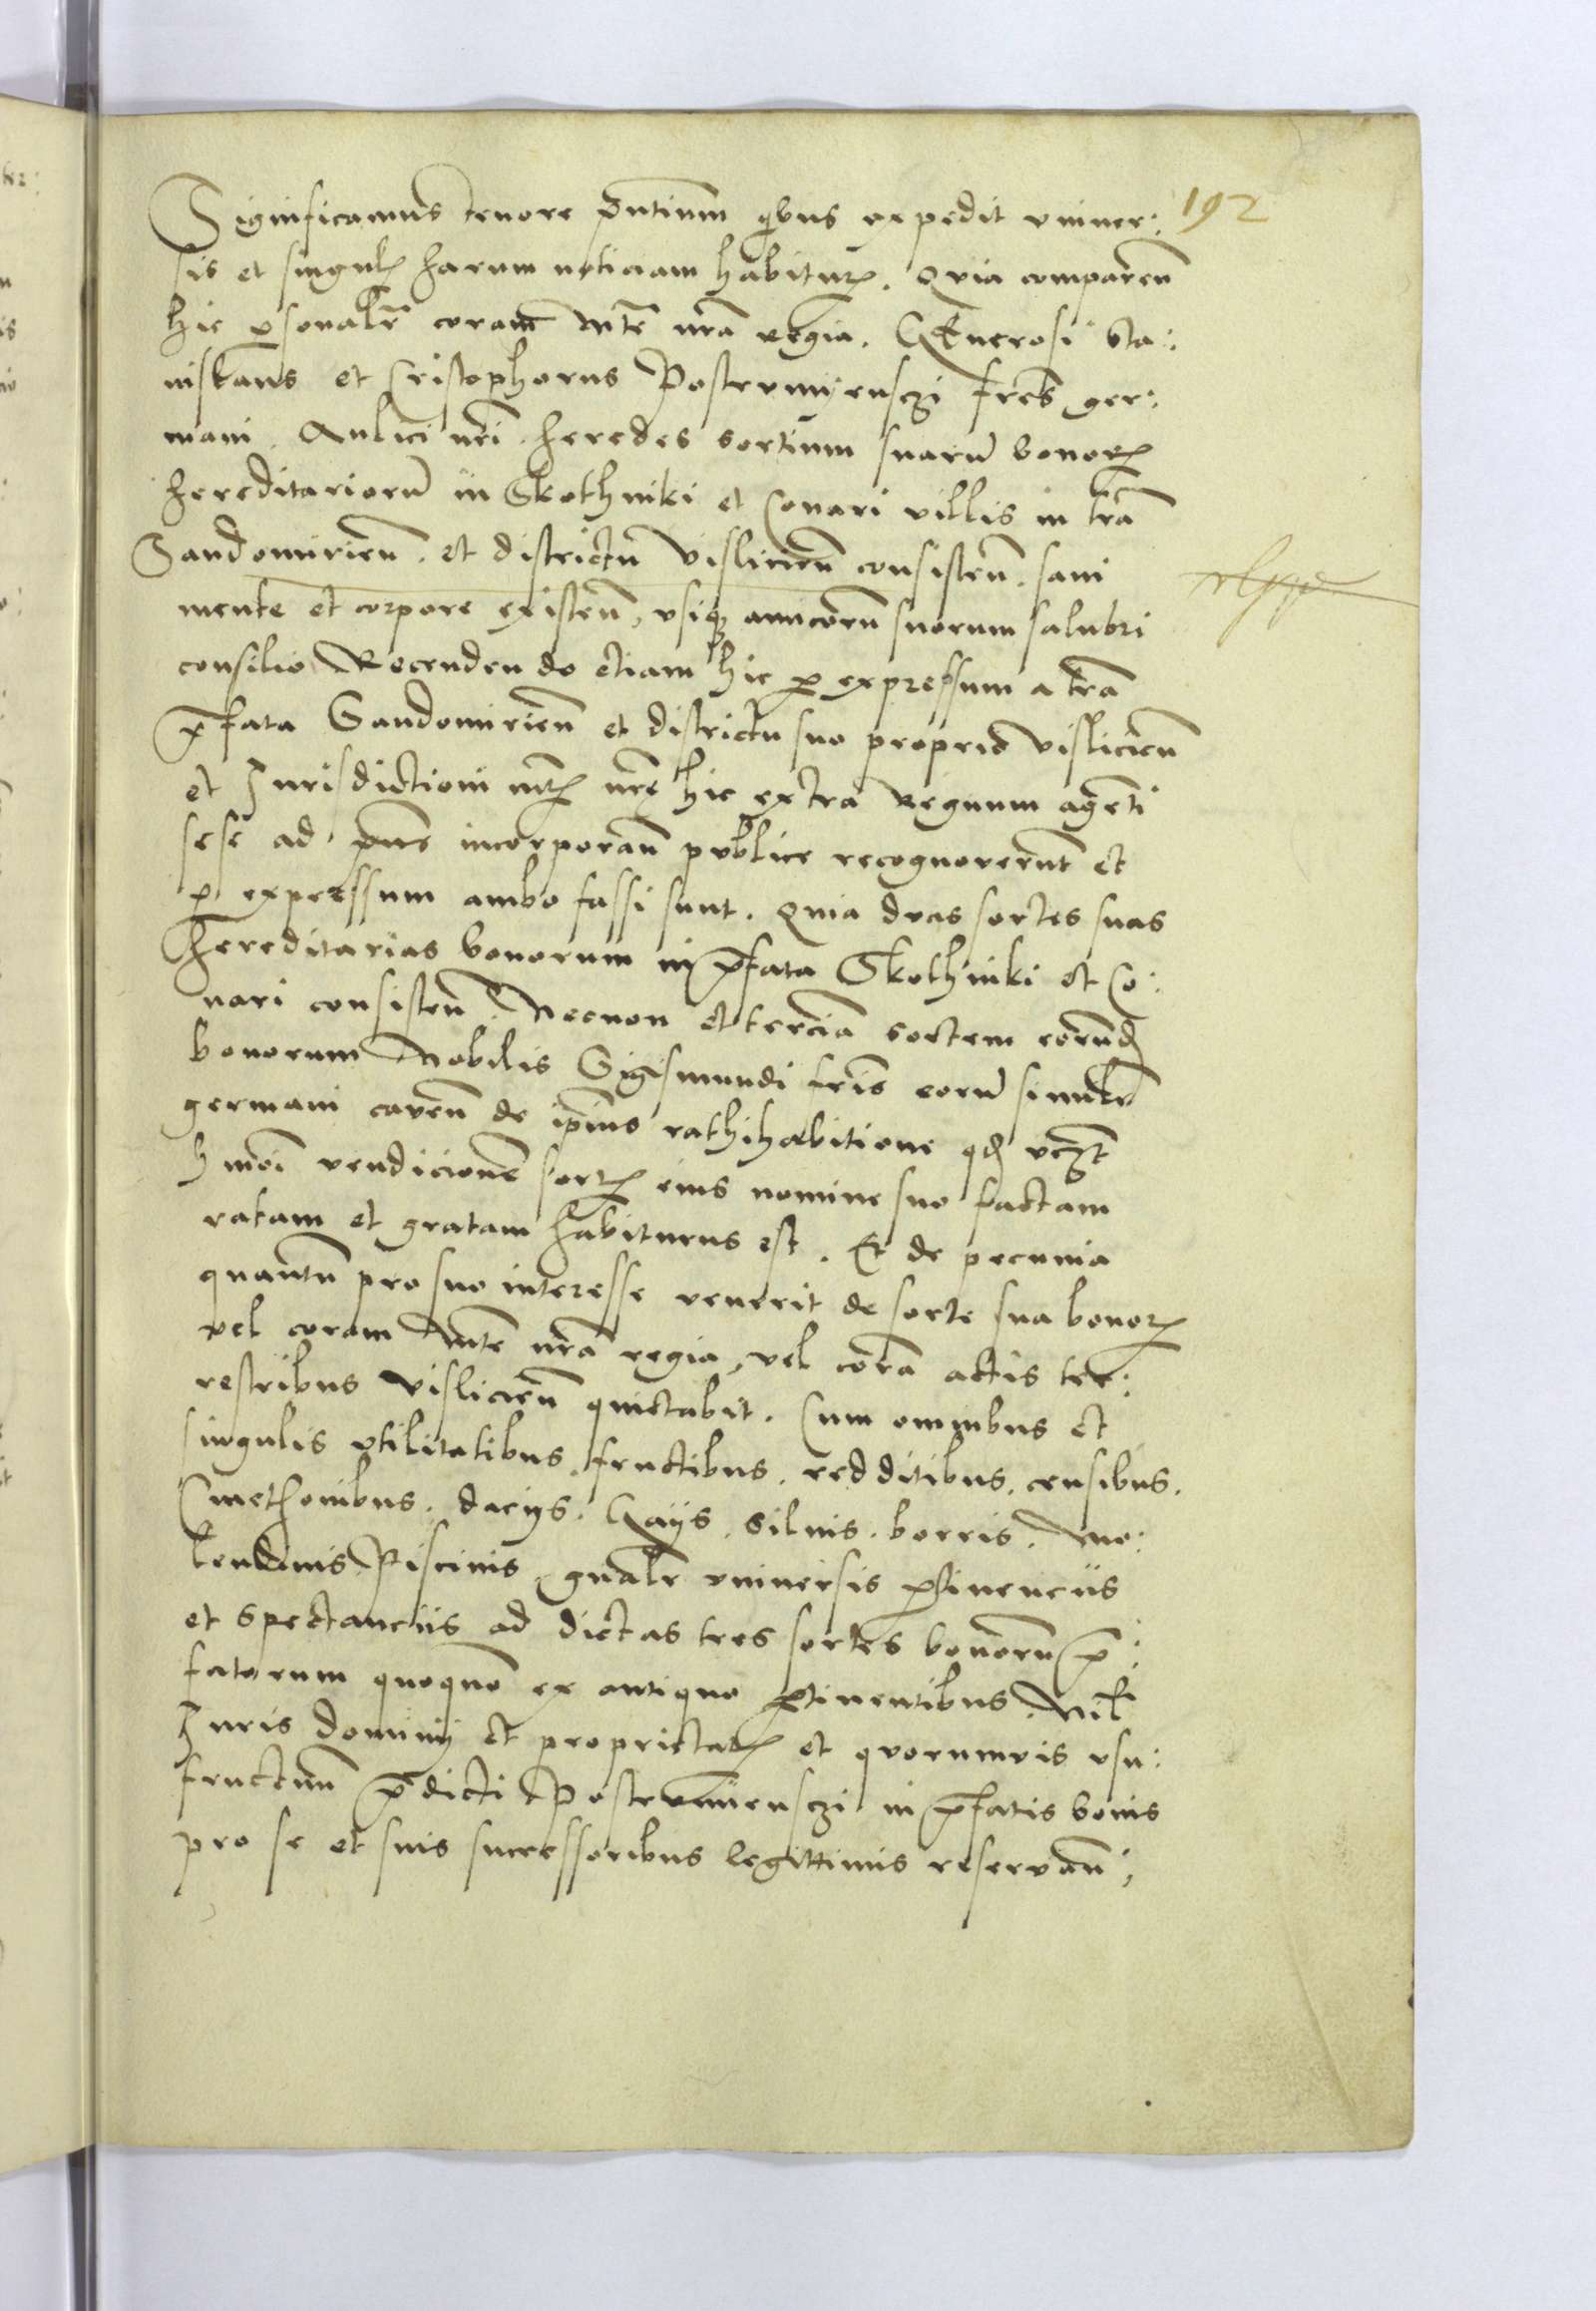 192
Significamus tenore pn̄tium qibus expedit vniuer:
sis et singulꝭ harum noticiam habiturꝭ. Quia comparen̄
hic ꝑsonalr̄ coram Mte nrā regia. GEnerosi Sta:
nislaus et Cristophorus Postrumyenszi frēs ger:
mani. Aulici nrī heredes sortium suarū bonorꝭ
hereditariorū in Skothniki et Conari villis in trā
Sandomirien̄. et districtu Vislicien̄ consisten̄. sani
mente et corpore existen̄, vsiqꝫ amicorū suorum salubri
consilio Recendendo etiam hic ꝑ expressum a trā
p̄fata Sandomirien̄ et districtu suo proprio vislicien̄
et Jurisdictioni mtꝭ nrę hic extra Regnum agēti
sese ad pn̄s incorporan̄ publice recognouerunt et
ꝑ expressum ambo fassi sunt. Quia duas sortes suas
hereditarias bonorum in p̄fata Skothniki et Co:
nari consisten̄. Necnon et terciā sortem eorundꝭ
bonorum Nobilis Sigismundi frīs eorū similr̄
germani cauen̄ de ipīus rathihabitione qd vcꝫt
hmōi vendicionē sortꝭ eius nomine suo factam
ratam et gratam habiturus est. Et de pecunia
quantū pro suo interesse venerit de sorte sua bonorꝭ
vel coram Mte nrā regia, vel corā actis ter:
restribus vislicien̄ quictabit. Cum omnibus et
singulis vtilitatibus, fructibus. redditibus. censibus.
Cmethonibus. dacijs. Gaijs. siluis. borris. Mo:
lendinis. Piscinis, gn̄alr̄ vniuersis ꝑtinenciis
et spectanciis ad dictas tres sortes bonorū p̄:
fatorum quoquō ex antiquo ꝑtinentibus. Nil
Juris dominij et proprietatꝭ et quorumuis vsu:
fructuū p̄dicti Postrumienszi in p̄fatis bonis
pro se et suis successoribus legittimis reseruan̄,